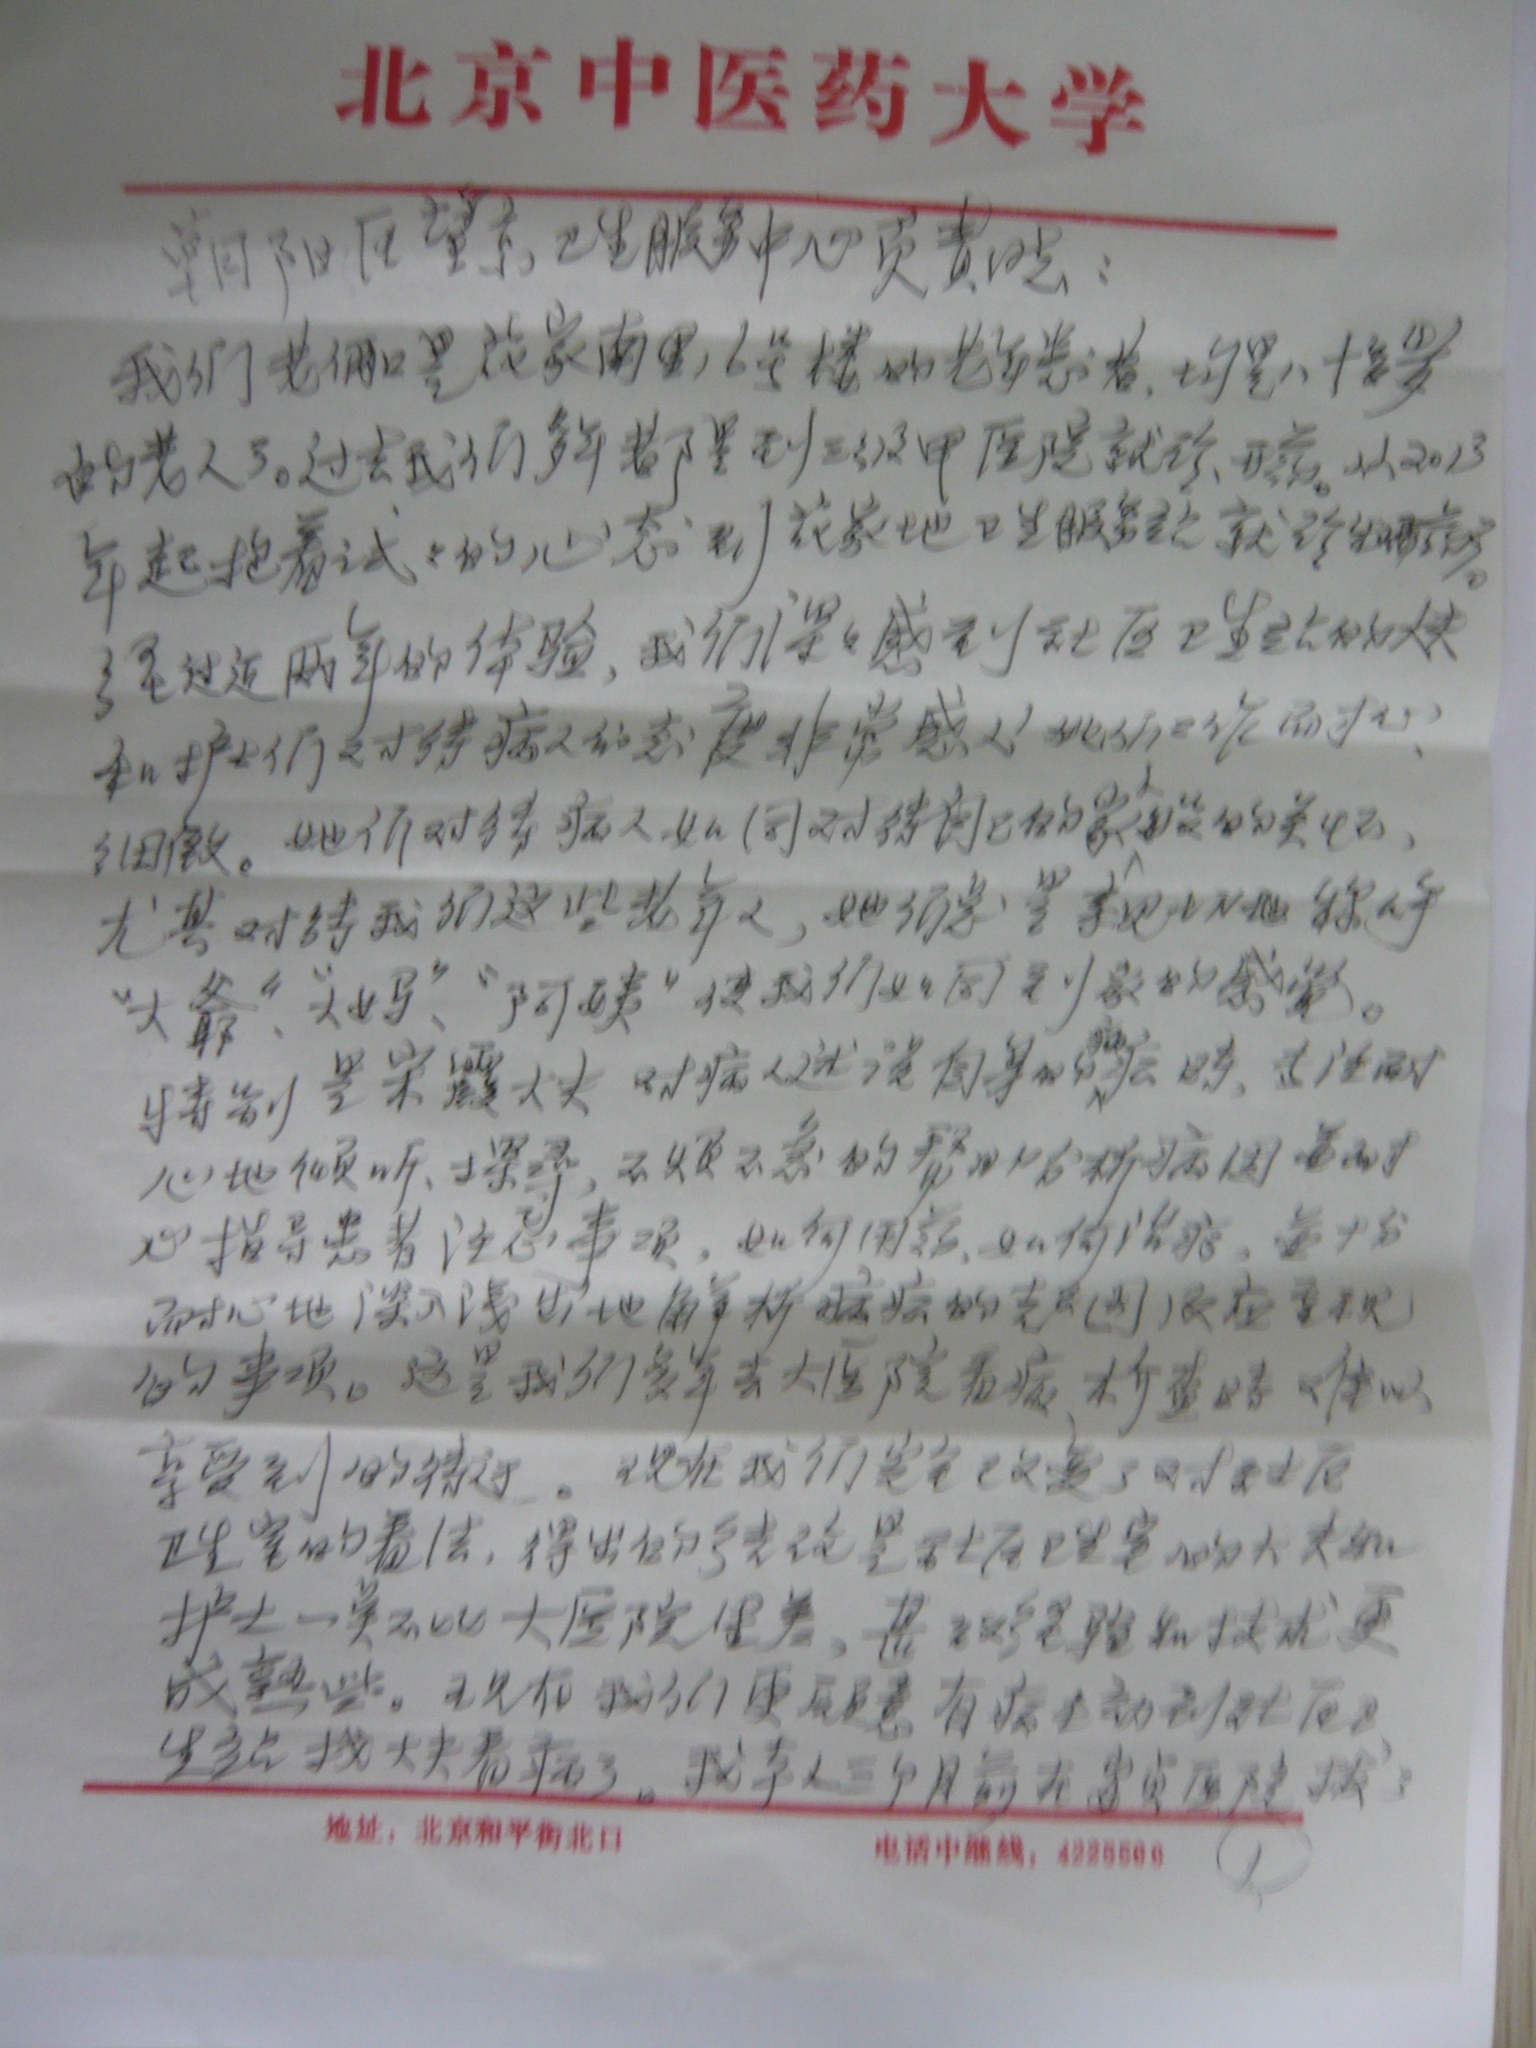 北京中医药大学
朝阳区望京卫生服务中心负责同志：
我们老俩口是花家南里16号楼的老年患者，均是八十多岁
的老人了。过去我们多年都是到三级甲医院就诊、开药。从2013
年起抱着试试的心态到花家地卫生服务站就诊
经过近两年的体验，我们深深感到社区卫生站的大夫
和护士们对待病人的态度非常感人她们工作耐心、
细微。她们对待病人如同对待自己的家人般的关怀，
尤其对待我们这些老年人，她们总是亲切地称呼
“大爷”、“大妈”、“阿姨”使我们如同到家的感觉。
特别是宋霞大夫对病人述说自身的病症时，专注耐
心地倾听、探寻，不烦不急的帮助分析病因并耐
心指导患者注意事项，如何用药、如何治病，并十分
耐心地深入浅出地解析病症的起因及应重视
的事项。这是我们多年去大医院看病、检查时难以
享受到的待遇。现在我们完全改变了对社区
卫生室的看法，得出的结论是社区卫生室的大夫和
护士一黄不比大医院里差，甚至经验和技术更
成熟些。现在我们更愿意有病主动到社区卫
生站找大夫看病了。我本人三个月前在安贞医院拔
地址：北京和平街北口
电话中继线：4225566
1